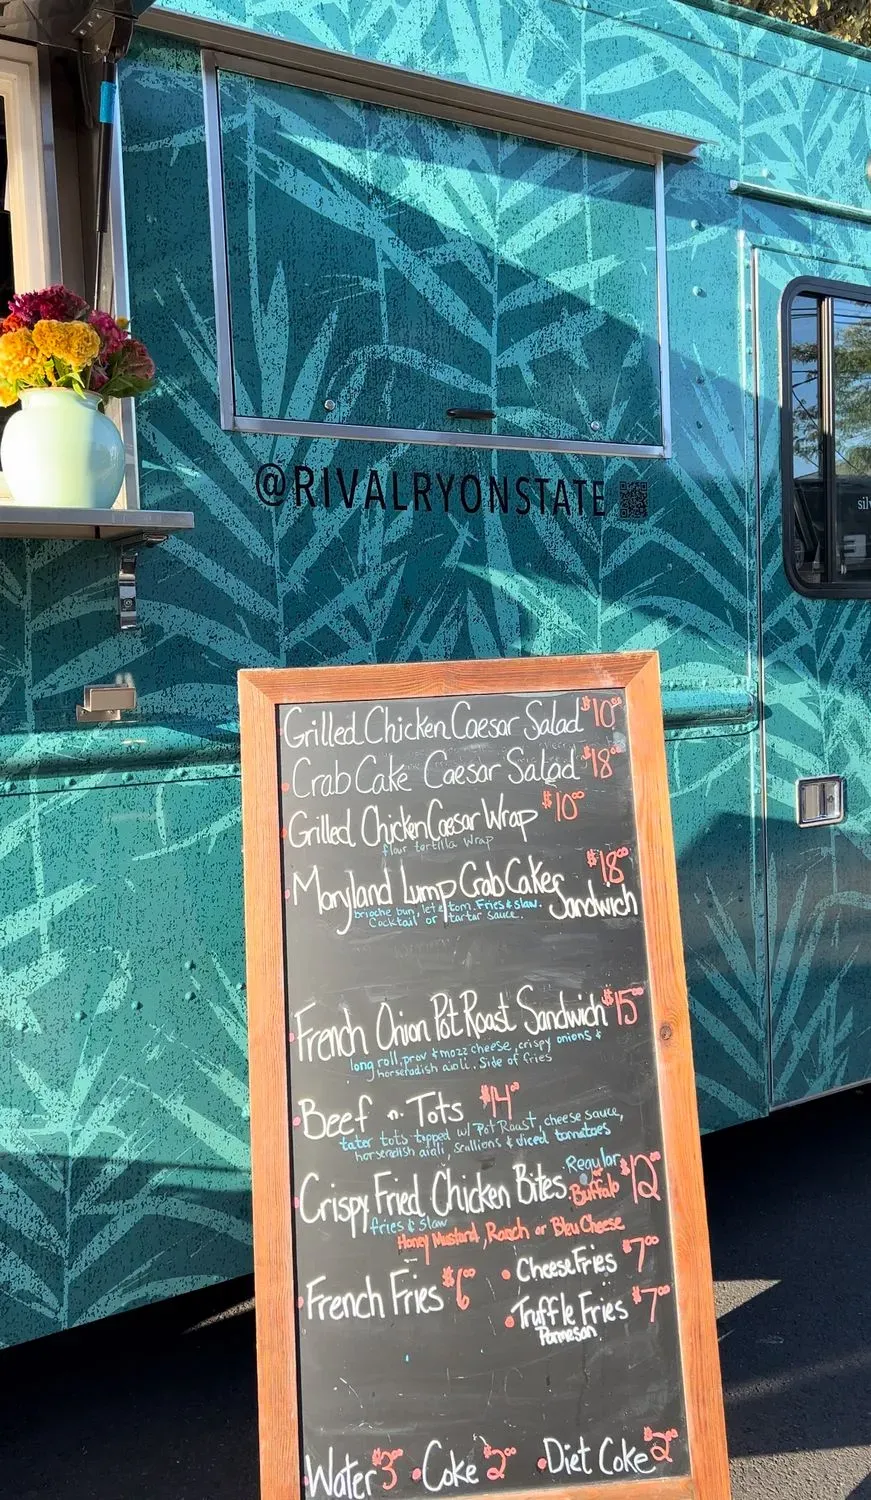 @RIVALRYONSTATE
sil
Grilled Chicken Caesar Salad $10.00
Crab Cake Caesar Salad $18.00
Grilled Chicken Caesar Wrap $10.00
flour tortilla wrap
Maryland Lump Crab Cakes $18.00
Sandwich
brioche bun, let & tom. Fries & slaw.
Cocktail or tartar sauce.
French Onion Pot Roast Sandwich $15.00
long roll, prov & mozz cheese, crispy onions &
horseradish aioli. Side of fries
Beef n Tots $14.00
tater tots topped w/ Pot Roast, cheese sauce,
horseradish aioli, scallions & diced tomatoes
Crispy Fried Chicken Bites Regular or Buffalo $12.00
fries & slaw
Honey Mustard, Ranch or Bleu Cheese
French Fries $6.00
Cheese Fries $7.00
Truffle Fries $7.00
Parmesan
Water $3.00 Coke $2.00 Diet Coke $2.00